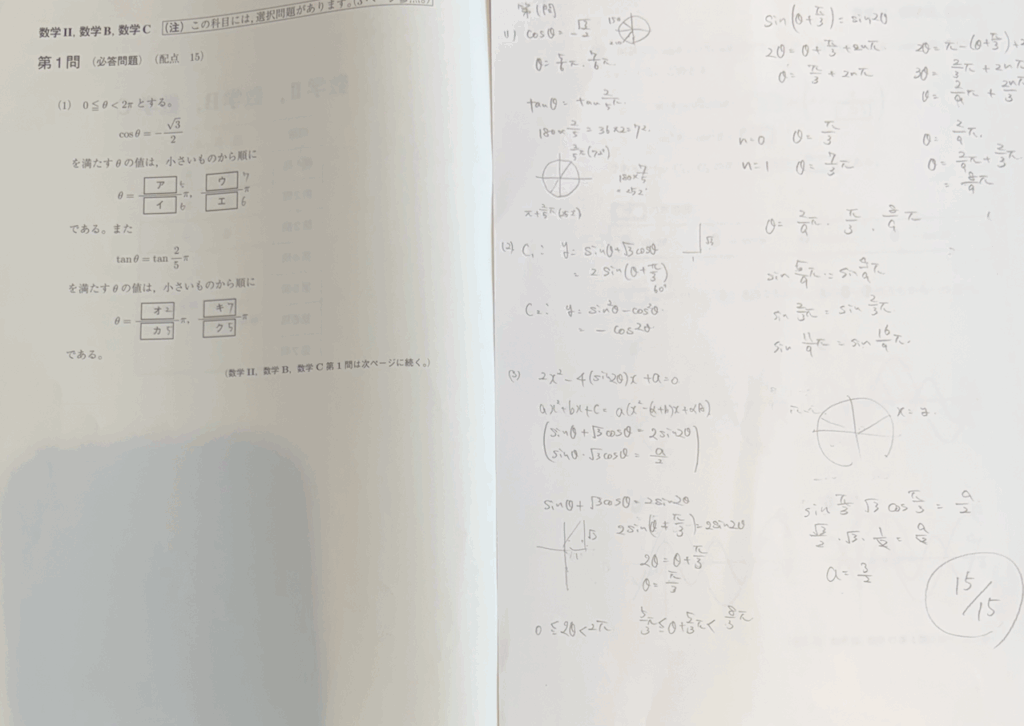 数学Ⅱ,数学B,数学C (注) この科目には,選択問題があります。
第1問 (必答問題) (配点 15)
(1) 0≦θ<2π とする。
cosθ=-√3/2
を満たすθの値は,小さいものから順に
θ=ア5/イ6π, ウ7/エ6π
である。また
tanθ=tan2/5π
を満たすθの値は,小さいものから順に
θ=オ2/カ5π, キ7/ク5π
である。
(数学Ⅱ,数学B,数学C第1問は次ページに続く。)
第1問
(1) cosθ=-√3/2
θ=5/6π, 7/6π
tanθ=tan2/5π
180×2/5=36×2=72.
2/5π(72°)
180×7/5
=252°
(2) C₁: y=sinθ+√3cosθ
=2sin(θ+π/3)
60°
C₂: y=sin²θ-cos²θ
=-cos2θ
(3) 2x²-4(sin2θ)x+a=0
ax²+bx+c=a(x²-(α+β)x+αβ)
sinθ+√3cosθ=2sin2θ
sinθ・√3cosθ=a/2
sinθ+√3cosθ=2sin2θ
√3
2sin(θ+π/3)=2sin2θ
2θ=θ+π/3
θ=π/3
0≦2θ<2π
sin(θ+π/3)=sin2θ
2θ=θ+π/3+2nπ
θ=π/3+2nπ
3θ=2/3π+2nπ
θ=2/9π+2nπ/3
n=0 θ=π/3 θ=2/9π,
n=1 θ=7/3π θ=2/9π+2/3π
=8/9π
θ=2/9π, π/3, 8/9π
sin5/9π=sin4/9π
sin2/3π=sin2/3π
sin11/9π=sin16/9π.
sinπ/3 √3cosπ/3=a/2
√3/2・√3・1/2=a/2
a=3/2
15/15